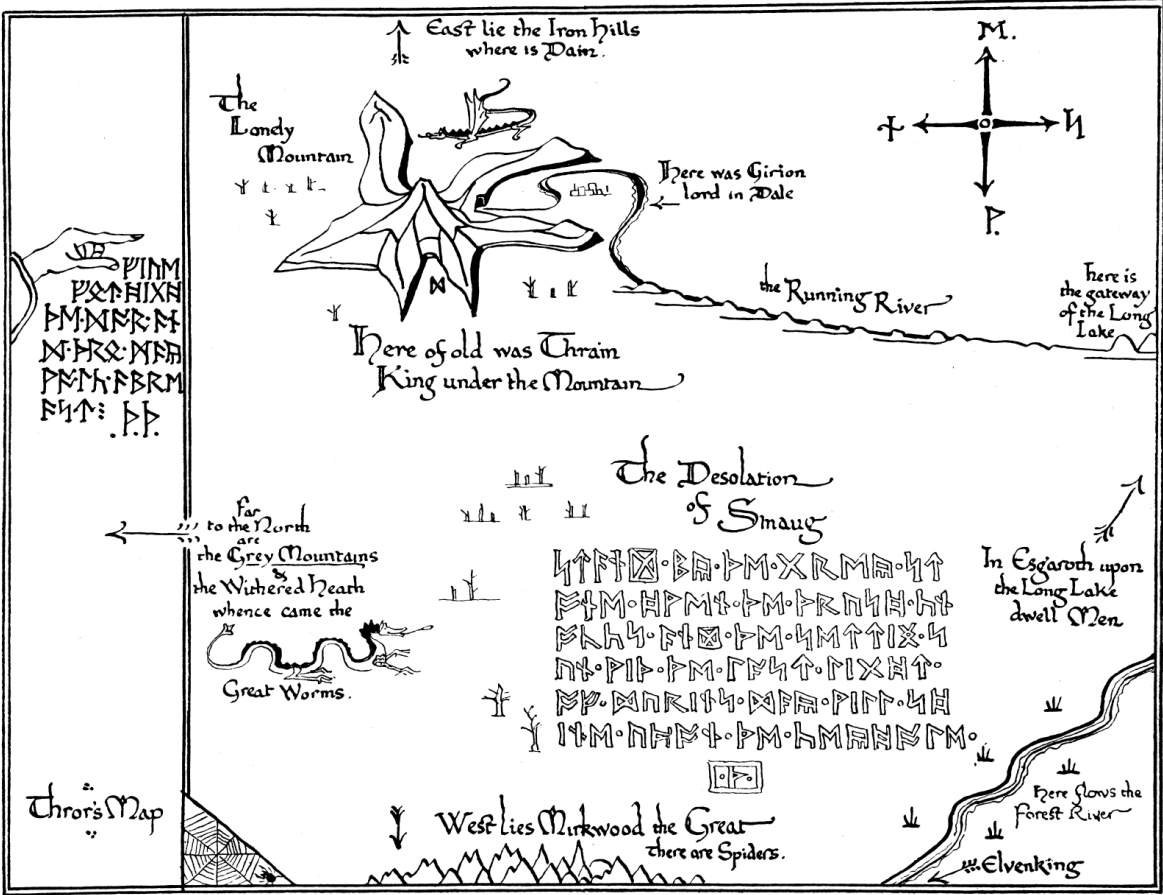 East lie the Iron Hills
where is Dain.
ᛖ.
The
Lonely
Mountain
ᚾ
ᛋ
Here was Girion
lord in Dale
ᚹ.
ᚠᛁᚢᛖ
ᚠᛟᛏ ᚻᛁᚷᚻ
ᚦᛖ·ᛞᚩᚱ·ᚪᚾ
ᛞ·ᚦᚱᛟ·ᛗᚪᚣ
ᚹᚪᛚᚳ·ᚪᛒᚱᛖ
ᚪᛋᛏ⁝ .ᚦ.ᚦ.
ᛞ
the Running River
Here is
the gateway
of the Long
Lake
Here of old was Thrain
King under the Mountain
The Desolation
of Smaug
Far
to the North
are
the Grey Mountains
&
the Withered Heath
whence came the
Great Worms.
ᛋᛏᚪᚾᛞ·ᛒᚣ·ᚦᛖ·ᚷᚱᛖᚣ·ᛋᛏ
ᚩᚾᛖ·ᚻᚹᛖᚾ·ᚦᛖ·ᚦᚱᚢᛋᚻ·ᚳᚾ
ᚩᚳᚳᛋ·ᚪᚾᛞ·ᚦᛖ·ᛋᛖᛏᛏᛁᛝ·ᛋ
ᚢᚾ·ᚹᛁᚦ·ᚦᛖ·ᛚᚪᛋᛏ·ᛚᛁᚷᚻᛏ·
ᚩᚠ·ᛞᚢᚱᛁᚾᛋ·ᛞᚪᚣ·ᚹᛁᛚᛚ·ᛋᚻ
ᛁᚾᛖ·ᚢᛈᚩᚾ·ᚦᛖ·ᚳᛖᚣᚻᚩᛚᛖ·
·ᚦ·
In Esgaroth upon
the Long Lake
dwell Men
Thror's Map
West lies Mirkwood the Great
there are Spiders.
Here flows the
Forest River
Elvenking